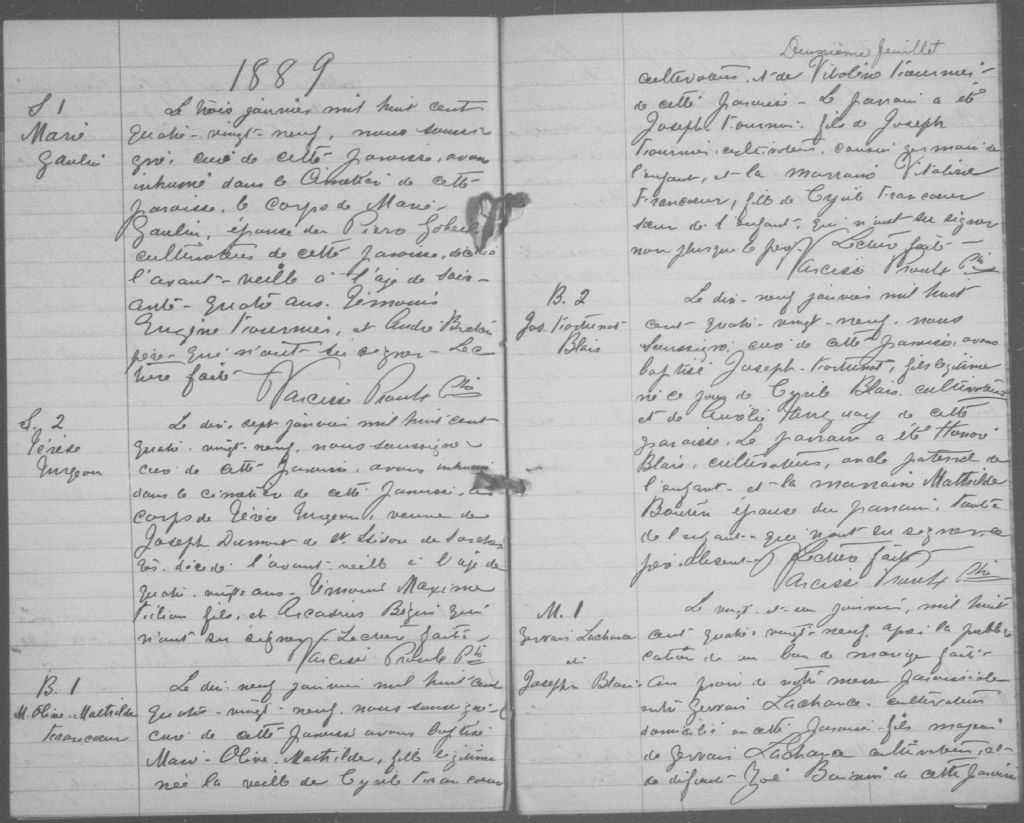 1889
S 1
Marie
Gaulin
Le trois janvier mil huit cent
quatre-vingt-neuf, nous soussi-
gné, curé de cette paroisse, avons
inhumé dans le cimetière de cette
paroisse, le corps de Marie-
Gaulin, épouse de Pierre
cultivateur de cette paroisse, décédée
l'avant-veille à l'âge de soix-
ante-quatre ans. Témoins
Eugène Fournier, et André Breton
père qui n'ont su signer - Lec
ture faite
Narcisse Proulx Ptre
S. 2
Térèse
Turgeon
Le dix-sept janvier mil huit cent
quatre-vingt-neuf, nous soussigné
curé de cette paroisse, avons inhumé
dans le cimetière de cette paroisse, le
corps de Térèse Turgeon, veuve de
Joseph Dumont de St. Isidore de
décédée l'avant-veille à l'âge de
quatre-vingts ans - Témoins Maxime
fils, et Arcadius Bégin qui
n'ont su signer Lecture faite
Narcisse Proulx Ptre
B. 1
M. Olive-Mathilde
Francoeur
Le dix-neuf janvier mil huit cent
quatre-vingt-neuf, nous soussigné
curé de cette paroisse avons baptisé
Marie-Olive-Mathilde, fille légitime
née la veille de Cyrile Francoeur
Deuxième feuillet
cultivateur, et de Vitaline Fournier
de cette paroisse - Le parrain a été
Joseph Fournier, fils de Joseph
Fournier, cultivateur, cousin germain de
l'enfant, et la marraine Vitaline
Francoeur, fille de Cyrile Francoeur
soeur de l'enfant, qui n'ont su signer
non plus que le père. Lecture faite -
Narcisse Proulx Ptre
B. 2
Jos. Fortunat
Blais
Le dix-neuf janvier mil huit
cent quatre-vingt-neuf, nous
soussigné, curé de cette paroisse, avons
baptisé Joseph-Fortunat, fils légitime
né ce jour de Cyrile Blais, cultivateur
et de Aurélie Tanguay de cette
paroisse. Le parrain a été Honoré
Blais, cultivateur, oncle paternel de
l'enfant - et la marraine Mathilde
Boutin épouse du parrain, tante
de l'enfant - qui n'ont su signer. Le
père absent - Lecture faite
Narcisse Proulx Ptre
M. 1
Gervais Lachance
et
Joseph Blais
Le vingt-et-un janvier, mil huit
cent quatre-vingt-neuf, après la publi-
cation de un ban de mariage faite
au prône de notre messe paroissiale
entre Gervais Lachance, cultivateur
domicilié en cette paroisse, fils majeur
de Gervais Lachance cultivateur, et
de défunte Zoé de cette paroisse